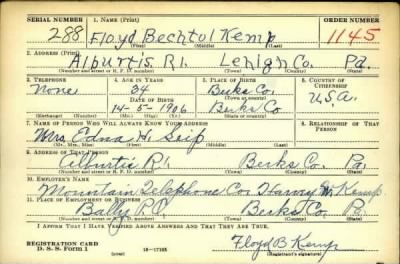 SERIAL NUMBER 1. NAME (Print) ORDER NUMBER
288 Floyd Bechtol Kemp 1145
(First) (Middle) (Last)
2. ADDRESS (Print)
Alburtis R1. Lehigh Co. Pa.
(Number and street or R. F. D. number) (Town) (County) (State)
3. TELEPHONE 4. AGE IN YEARS 5. PLACE OF BIRTH 6. COUNTRY OF CITIZENSHIP
None 34 Berks Co.
DATE OF BIRTH (Town or county)
14-5-1906 Berks Co. U.S.A.
(Exchange) (Number) (Mo.) (Day) (Yr.) (State or country)
7. NAME OF PERSON WHO WILL ALWAYS KNOW YOUR ADDRESS 8. RELATIONSHIP OF THAT PERSON
Mrs Edna H. Seip
(Mr., Mrs., Miss) (First) (Middle) (Last)
9. ADDRESS OF THAT PERSON
Alburtis R1. Berks Co. Pa.
(Number and street or R. F. D. number) (Town) (County) (State)
10. EMPLOYER'S NAME
Mountain Telephone Co. Harvey W. Kemp
11. PLACE OF EMPLOYMENT OR BUSINESS
Bally R.D. Berks Co. Pa.
(Number and street or R. F. D. number) (Town) (County) (State)
I AFFIRM THAT I HAVE VERIFIED ABOVE ANSWERS AND THAT THEY ARE TRUE.
REGISTRATION CARD
D. S. S. Form 1 (over) 16-17105 Floyd B Kemp